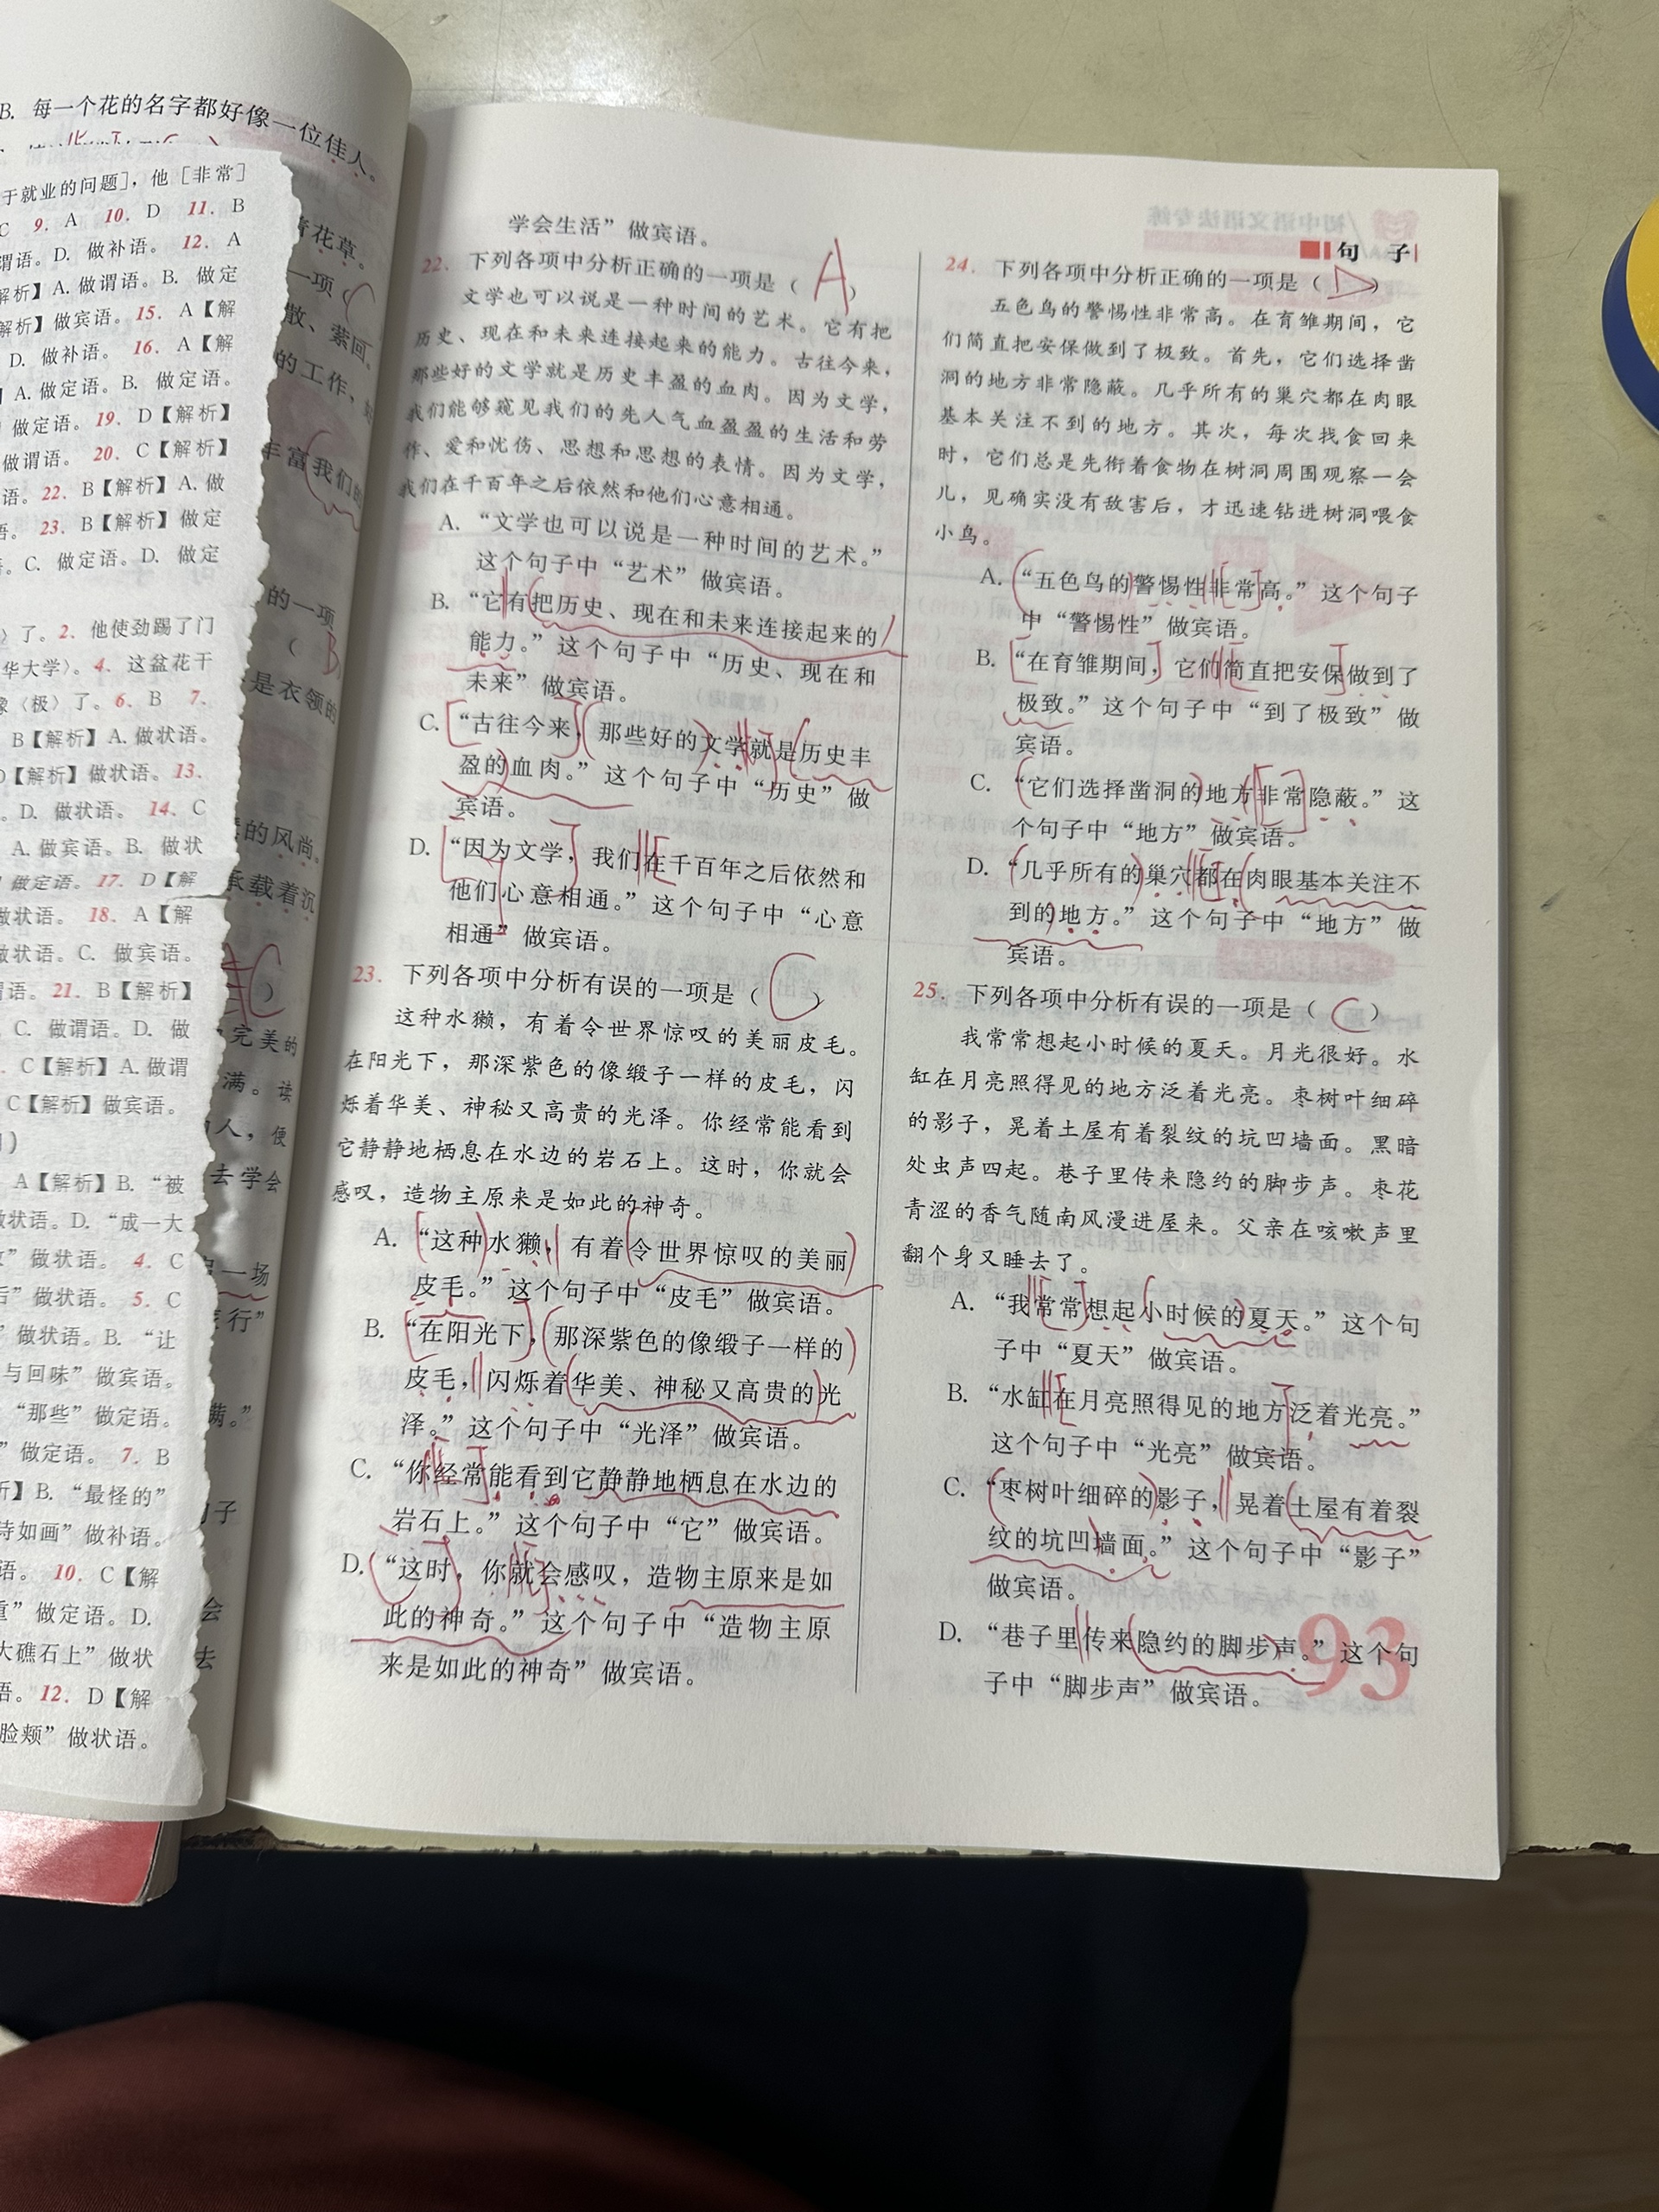 B. 每一个花的名字都好像一位佳人。
于就业的问题］，他［非常］
C 9. A 10. D 11. B
谓语。D. 做补语。12. A
解析】A. 做谓语。B. 做定
解析】做宾语。15. A【解
D. 做补语。16. A【解
】A. 做定语。B. 做定语。
做定语。19. D【解析】
做谓语。20. C【解析】
语。22. B【解析】A. 做
语。23. B【解析】做定
。C. 做定语。D. 做定
〉了。2. 他使劲踢了门
华大学〉。4. 这盆花干
像〈极〉了。6. B 7.
B【解析】A. 做状语。
D【解析】做状语。13.
。D. 做状语。14. C
A. 做宾语。B. 做状
做定语。17. D【解
做状语。18. A【解
做状语。C. 做宾语。
谓语。21. B【解析】
C. 做谓语。D. 做
. C【解析】A. 做谓
C【解析】做宾语。
A【解析】B. “被
做状语。D. “成一大
”做状语。4. C
后”做状语。5. C
”做状语。B. “让
与回味”做宾语。
“那些”做定语。
”做定语。7. B
析】B. “最怪的”
诗如画”做补语。
语。10. C【解
重”做定语。D.
大礁石上”做状
语。12. D【解
脸颊”做状语。
花草。
一项
散、萦回。
的工作、
丰富我们的
的一项
（ B
是衣领的
的风尚。
承载着沉
C ）
完美的
满。读
人，便
去学会
一场
行”
满。”
子
会
去
句 子
学会生活”做宾语。
22. 下列各项中分析正确的一项是（ A ）
文学也可以说是一种时间的艺术。它有把
历史、现在和未来连接起来的能力。古往今来，
那些好的文学就是历史丰盈的血肉。因为文学，
我们能够窥见我们的先人气血盈盈的生活和劳
作、爱和忧伤、思想和思想的表情。因为文学，
我们在千百年之后依然和他们心意相通。
A. “文学也可以说是一种时间的艺术。”
这个句子中“艺术”做宾语。
B. “它有把历史、现在和未来连接起来的
能力。”这个句子中“历史、现在和
未来”做宾语。
C. “古往今来，那些好的文学就是历史丰
盈的血肉。”这个句子中“历史”做
宾语。
D. “因为文学，我们在千百年之后依然和
他们心意相通。”这个句子中“心意
相通”做宾语。
23. 下列各项中分析有误的一项是（ C ）
这种水獭，有着令世界惊叹的美丽皮毛。
在阳光下，那深紫色的像缎子一样的皮毛，闪
烁着华美、神秘又高贵的光泽。你经常能看到
它静静地栖息在水边的岩石上。这时，你就会
感叹，造物主原来是如此的神奇。
A. “这种水獭，有着令世界惊叹的美丽
皮毛。”这个句子中“皮毛”做宾语。
B. “在阳光下，那深紫色的像缎子一样的
皮毛，闪烁着华美、神秘又高贵的光
泽。”这个句子中“光泽”做宾语。
C. “你经常能看到它静静地栖息在水边的
岩石上。”这个句子中“它”做宾语。
D. “这时，你就会感叹，造物主原来是如
此的神奇。”这个句子中“造物主原
来是如此的神奇”做宾语。
24. 下列各项中分析正确的一项是（ D ）
五色鸟的警惕性非常高。在育雏期间，它
们简直把安保做到了极致。首先，它们选择凿
洞的地方非常隐蔽。几乎所有的巢穴都在肉眼
基本关注不到的地方。其次，每次找食回来
时，它们总是先衔着食物在树洞周围观察一会
儿，见确实没有敌害后，才迅速钻进树洞喂食
小鸟。
A. “五色鸟的警惕性非常高。”这个句子
中“警惕性”做宾语。
B. “在育雏期间，它们简直把安保做到了
极致。”这个句子中“到了极致”做
宾语。
C. “它们选择凿洞的地方非常隐蔽。”这
个句子中“地方”做宾语。
D. “几乎所有的巢穴都在肉眼基本关注不
到的地方。”这个句子中“地方”做
宾语。
25. 下列各项中分析有误的一项是（ C ）
我常常想起小时候的夏天。月光很好。水
缸在月亮照得见的地方泛着光亮。枣树叶细碎
的影子，晃着土屋有着裂纹的坑凹墙面。黑暗
处虫声四起。巷子里传来隐约的脚步声。枣花
青涩的香气随南风漫进屋来。父亲在咳嗽声里
翻个身又睡去了。
A. “我常常想起小时候的夏天。”这个句
子中“夏天”做宾语。
B. “水缸在月亮照得见的地方泛着光亮。”
这个句子中“光亮”做宾语。
C. “枣树叶细碎的影子，晃着土屋有着裂
纹的坑凹墙面。”这个句子中“影子”
做宾语。
D. “巷子里传来隐约的脚步声。”这个句
子中“脚步声”做宾语。
93